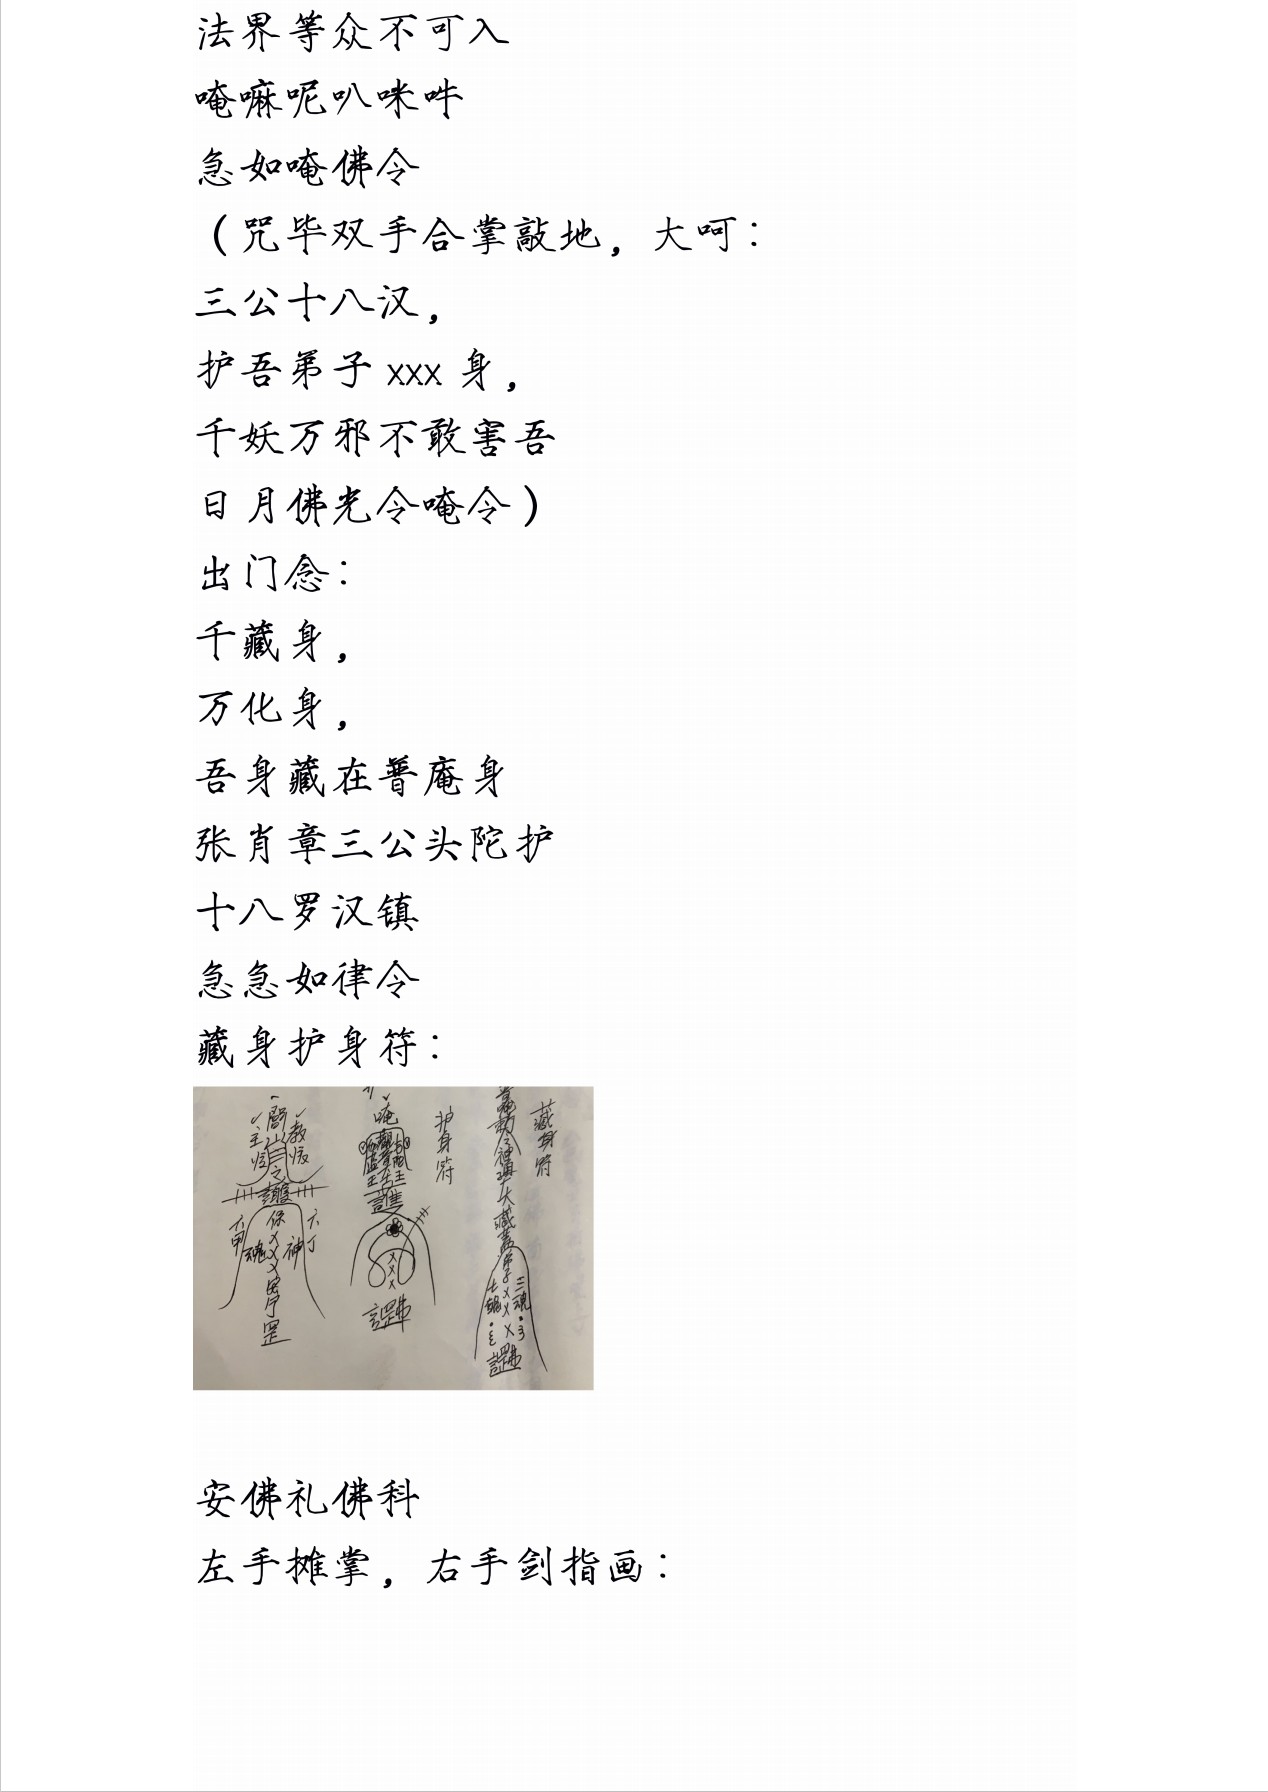 法界等众不可入
唵嘛呢叭咪吽
急如唵佛令
（咒毕双手合掌敲地，大呵：
三公十八汉，
护吾弟子 xxx 身，
千妖万邪不敢害吾
日月佛光令唵令）
出门念：
千藏身，
万化身，
吾身藏在普庵身
张肖章三公头陀护
十八罗汉镇
急急如律令
藏身护身符：
护身符
藏身符
六甲
六丁
保
魂
神
唵
三魂
安佛礼佛科
左手摊掌，右手剑指画：